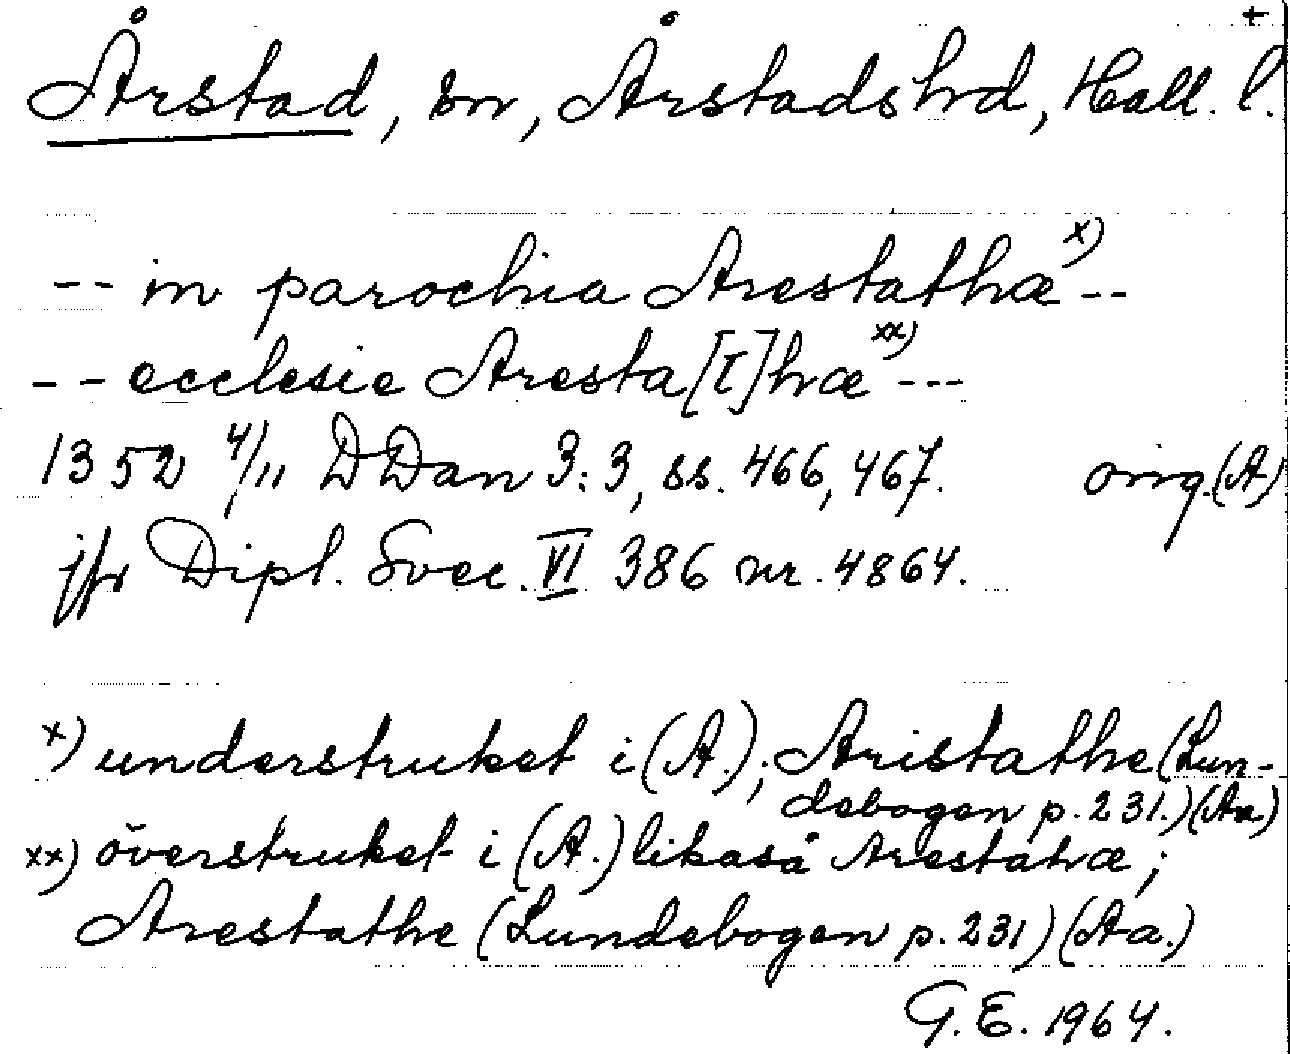 +
Årstad, sn, Årstads hrd, Hall. l.
-- in parochia Arestathæ x) --
-- ecclesie Aresta[t]hræ xx) ---
1352 4/11 DDan 3:3, ss. 466, 467. orig. (A)
jfr Dipl. Svec. VI 386 nr. 4864.
x) understruket i (A.); Aristathe (Lun-
debogen p. 231.) (Aa.)
xx) överstruket i (A.) likaså Arestahræ;
Arestathe (Lundebogen p. 231) (Aa.)
G.E. 1964.